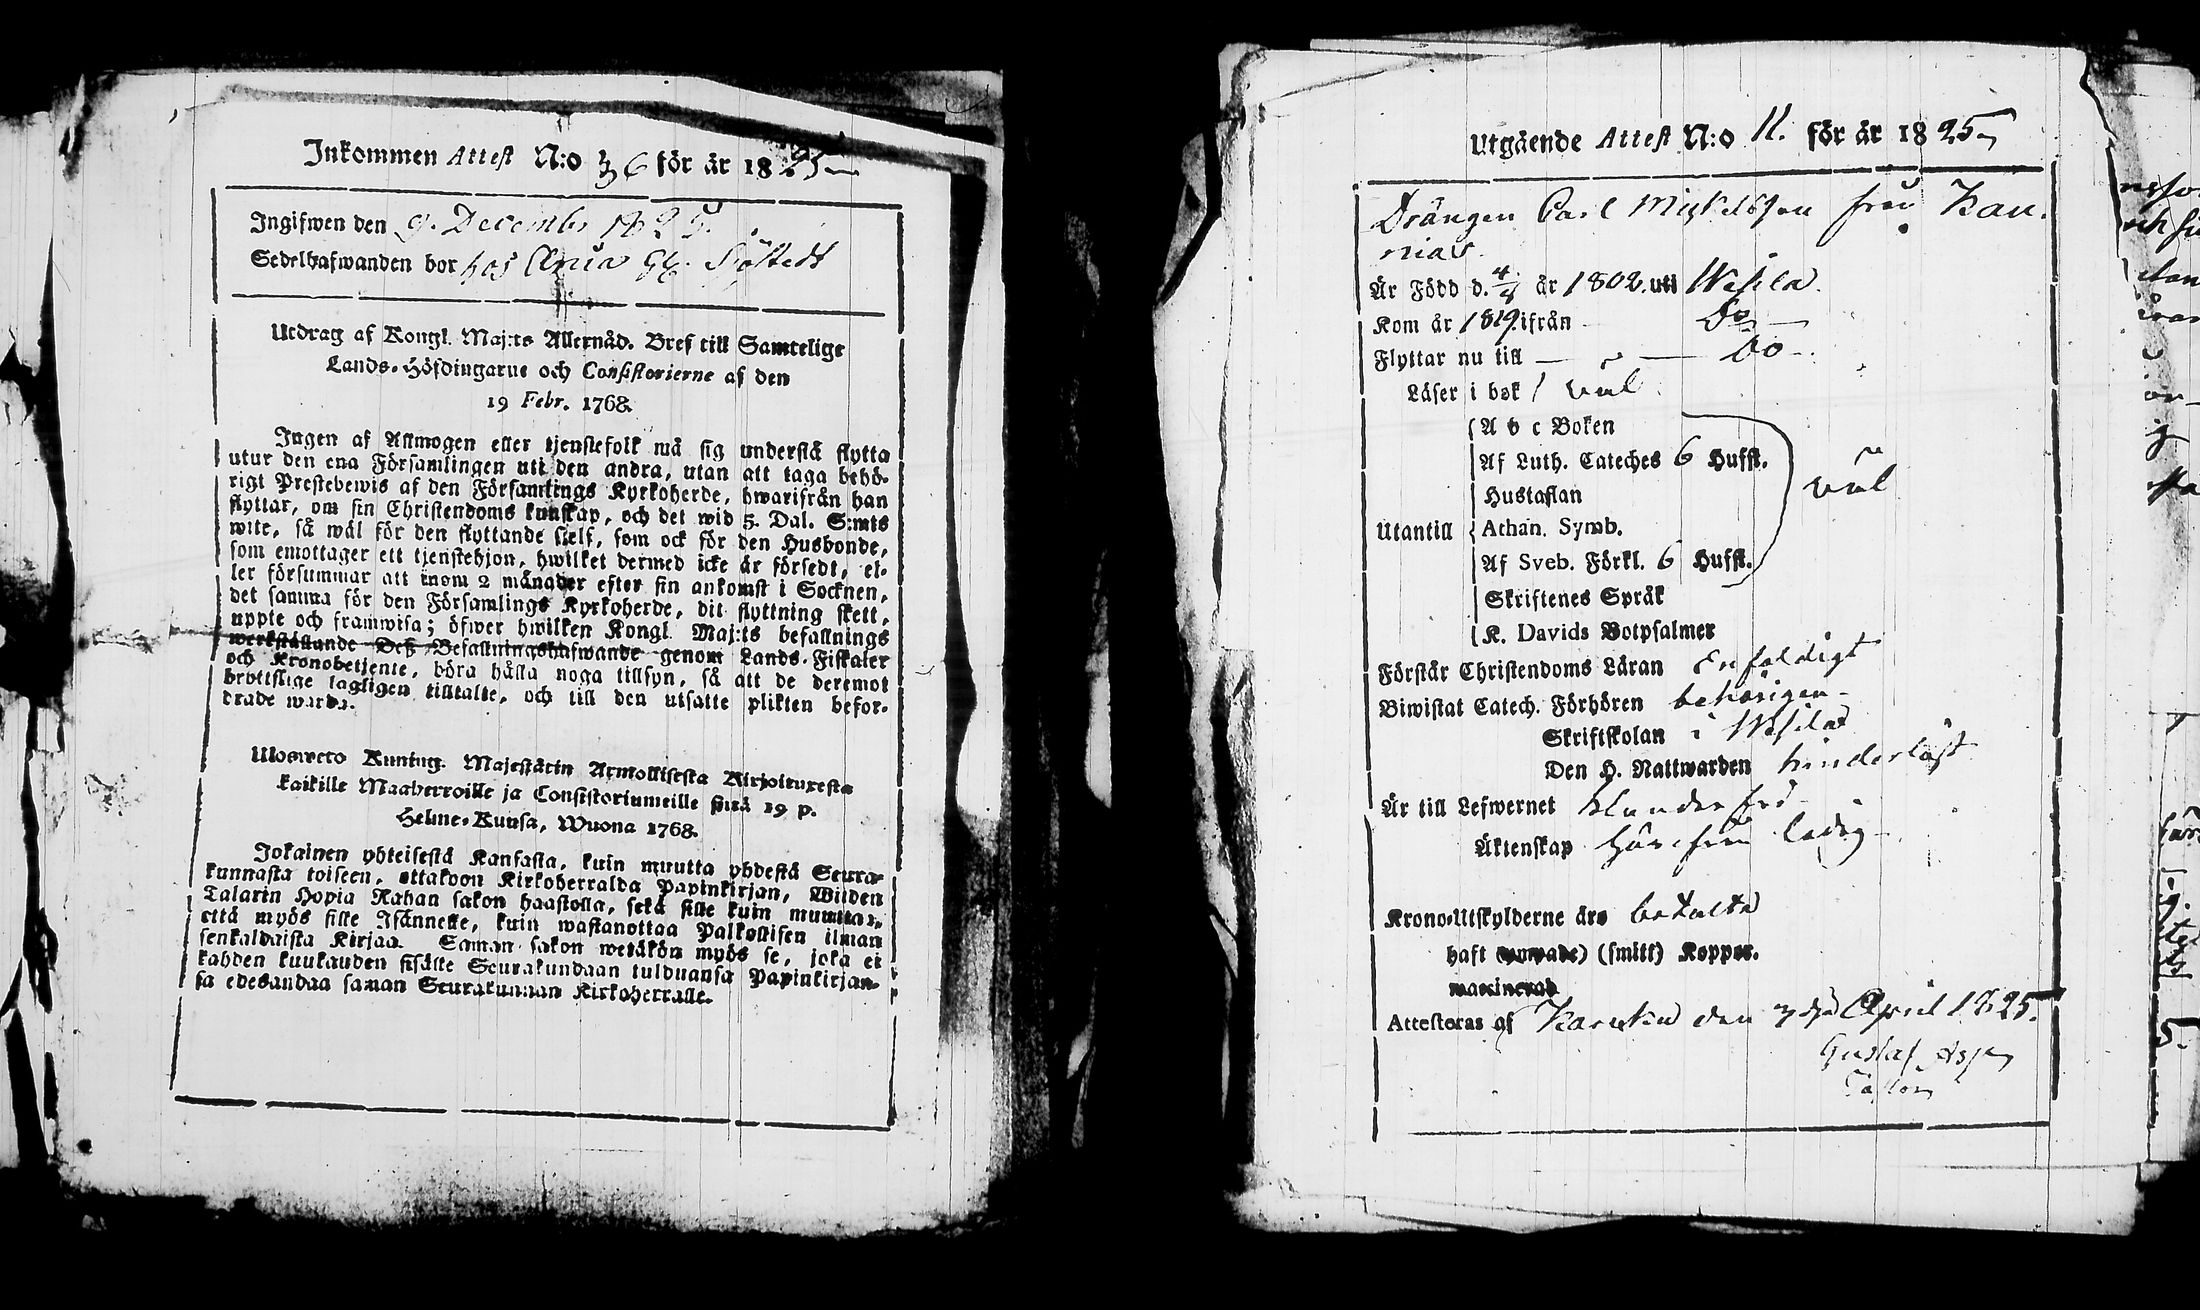 Inkommen Attest N:o 36 för år 1825
Ingifwen den 9. Decembr 1825.
Sedelhafwanden bor hos Sjöstedt
Utdrag af Kongl. Maj:ts Allernåd. Bref till Samtelige
Lands-Höfdingarne och Consistorierne af den
19 Febr. 1768.
Ingen af Allmogen eller tjenstefolk må sig understå flytta
utur den ena Församlingen uti den andra, utan att taga behö-
rigt Prestebewis af den Församlings Kyrkoherde, hwarifrån han
flyttar, om sin Christendoms kunskap, och det wid 5. Dal. S:mts
wite, så wäl för den flyttande sielf, som ock för den Husbonde,
som emottager ett tjenstehjon, hwilket dermed icke är försedt, el-
ler försummar att inom 2 månader efter sin ankomst i Socknen,
det samma för den Församlings Kyrkoherde, dit flyttning skett,
uppte och framwisa; öfwer hwilken Kongl. Maj:ts befallnings
werkställande Deß Befallningshafwande genom Lands-Fiskaler
och Kronobetjente, böra hålla noga tillsyn, så att de deremot
brottslige lagligen tilltalte, och till den utsatte plikten befor-
drade warda.
Ulosweto Kuning. Majestätin Armollisesta Kirjoituxesta
kaikille Maaherroille ja Consistoriumeille siitä 19 p.
Helme-Kuusa, Wuona 1768.
Jokainen yhteisestä Kansasta, kuin muutta yhdestä Seura-
kunnasta toiseen, ottakoon Kirkoherralda Papinkirjan, Wiiden
Talarin Hopia Rahan sakon haastolla, sekä sille kuin muuttaa,
että myös sille Isännelle, kuin wastanottaa Palkollisen ilman
senkaldaista Kirjaa. Saman sakon wetäkön myös se, joka ei
kahden kuukauden sisälle Seurakundaan tulduansa Papinkirjan-
sa edesandaa saman Seurakunnan Kirkoherralle.
Utgående Attest N:o 11. för år 1825
Drängen Carl Mickelsson från Kan-
nias
Är Född d. 4/4 år 1802. uti Wesila.
Kom år 1819. ifrån Do
Flyttar nu till Do
Läser i bok wäl
A b c Boken
Af Luth. Cateches 6 Hufst.
Hustaflan
Utantill Athan. Symb. wäl
Af Sveb. Förkl. 6 Hufst.
Skriftenes Språk
K. Davids Botpsalmer
Förstår Christendoms Läran Enfaldigt
Biwistat Catech. Förhören behörigen
Skriftskolan i Wesila
Den H. Nattwarden hinderlöst
Är till Lefwernet klanderfri
Äktenskap härifrån ledig
Krono-Utskylderne äro betalta
haft (smitt) Koppor.
Attesteras af Karuku den 7de April 1825.
Gustaf
Pastor